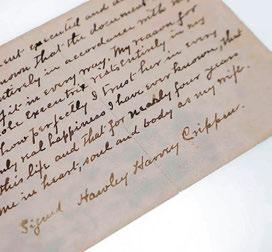 ent executed and a
known that the document
entirely in accordance with my
if in every way. My reason for
sole executrix rests entirely in my
how perfectly I trust her in every
only real happiness I have ever known, that
this life and that for nearly four years
me in heart, soul and body as my wife.
Signed Hawley Harvey Crippen.